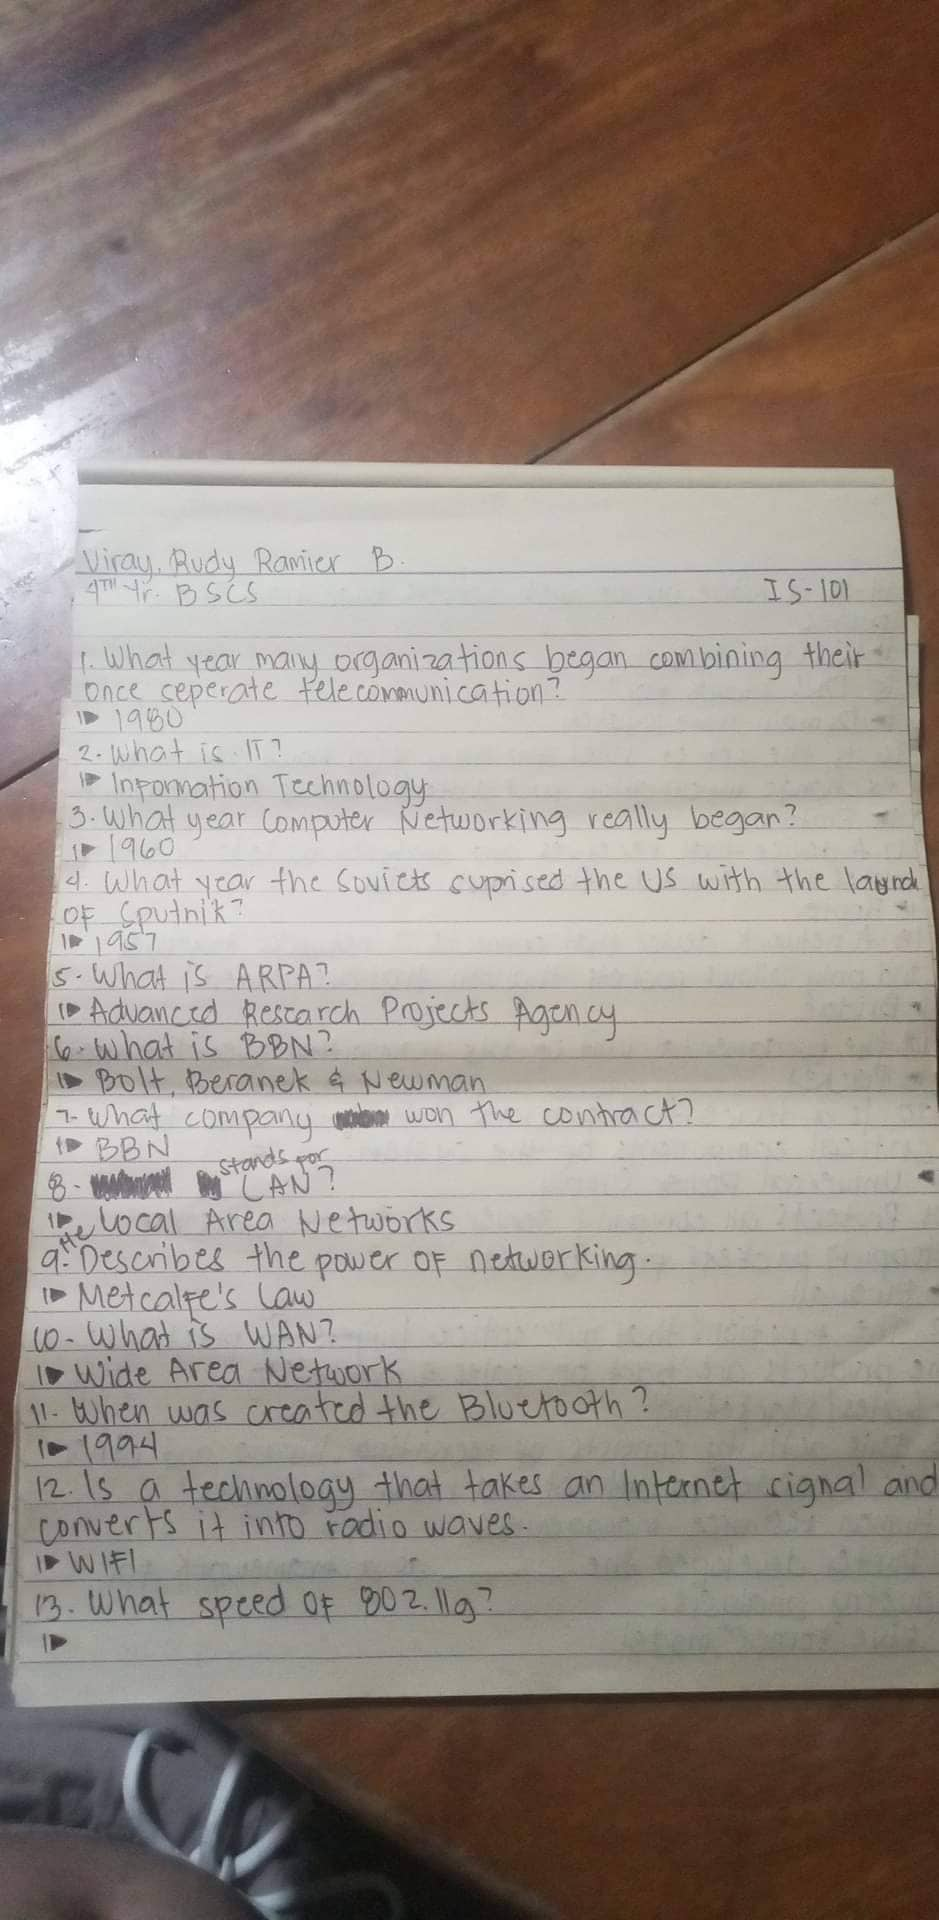 Viray, Rudy Ramier B.
4TH Yr. BSCS IS-101
1. What year many organizations began combining their
once seperate telecommunication?
1980
2. What is IT?
Information Technology
3. What year Computer Networking really began?
1960
4. What year the Soviets suprised the US with the launch
of Sputnik?
1957
5. What is ARPA?
Advanced Research Projects Agency
6. What is BBN?
Bolt, Beranek & Newman
7. What company won the contract?
BBN
8. stands for LAN?
Local Area Networks
9. He Describes the power of networking.
Metcalfe's Law
10. What is WAN?
Wide Area Network
11. When was created the Bluetooth?
1994
12. Is a technology that takes an Internet signal and
converts it into radio waves.
WIFI
13. What speed of 802.11g?